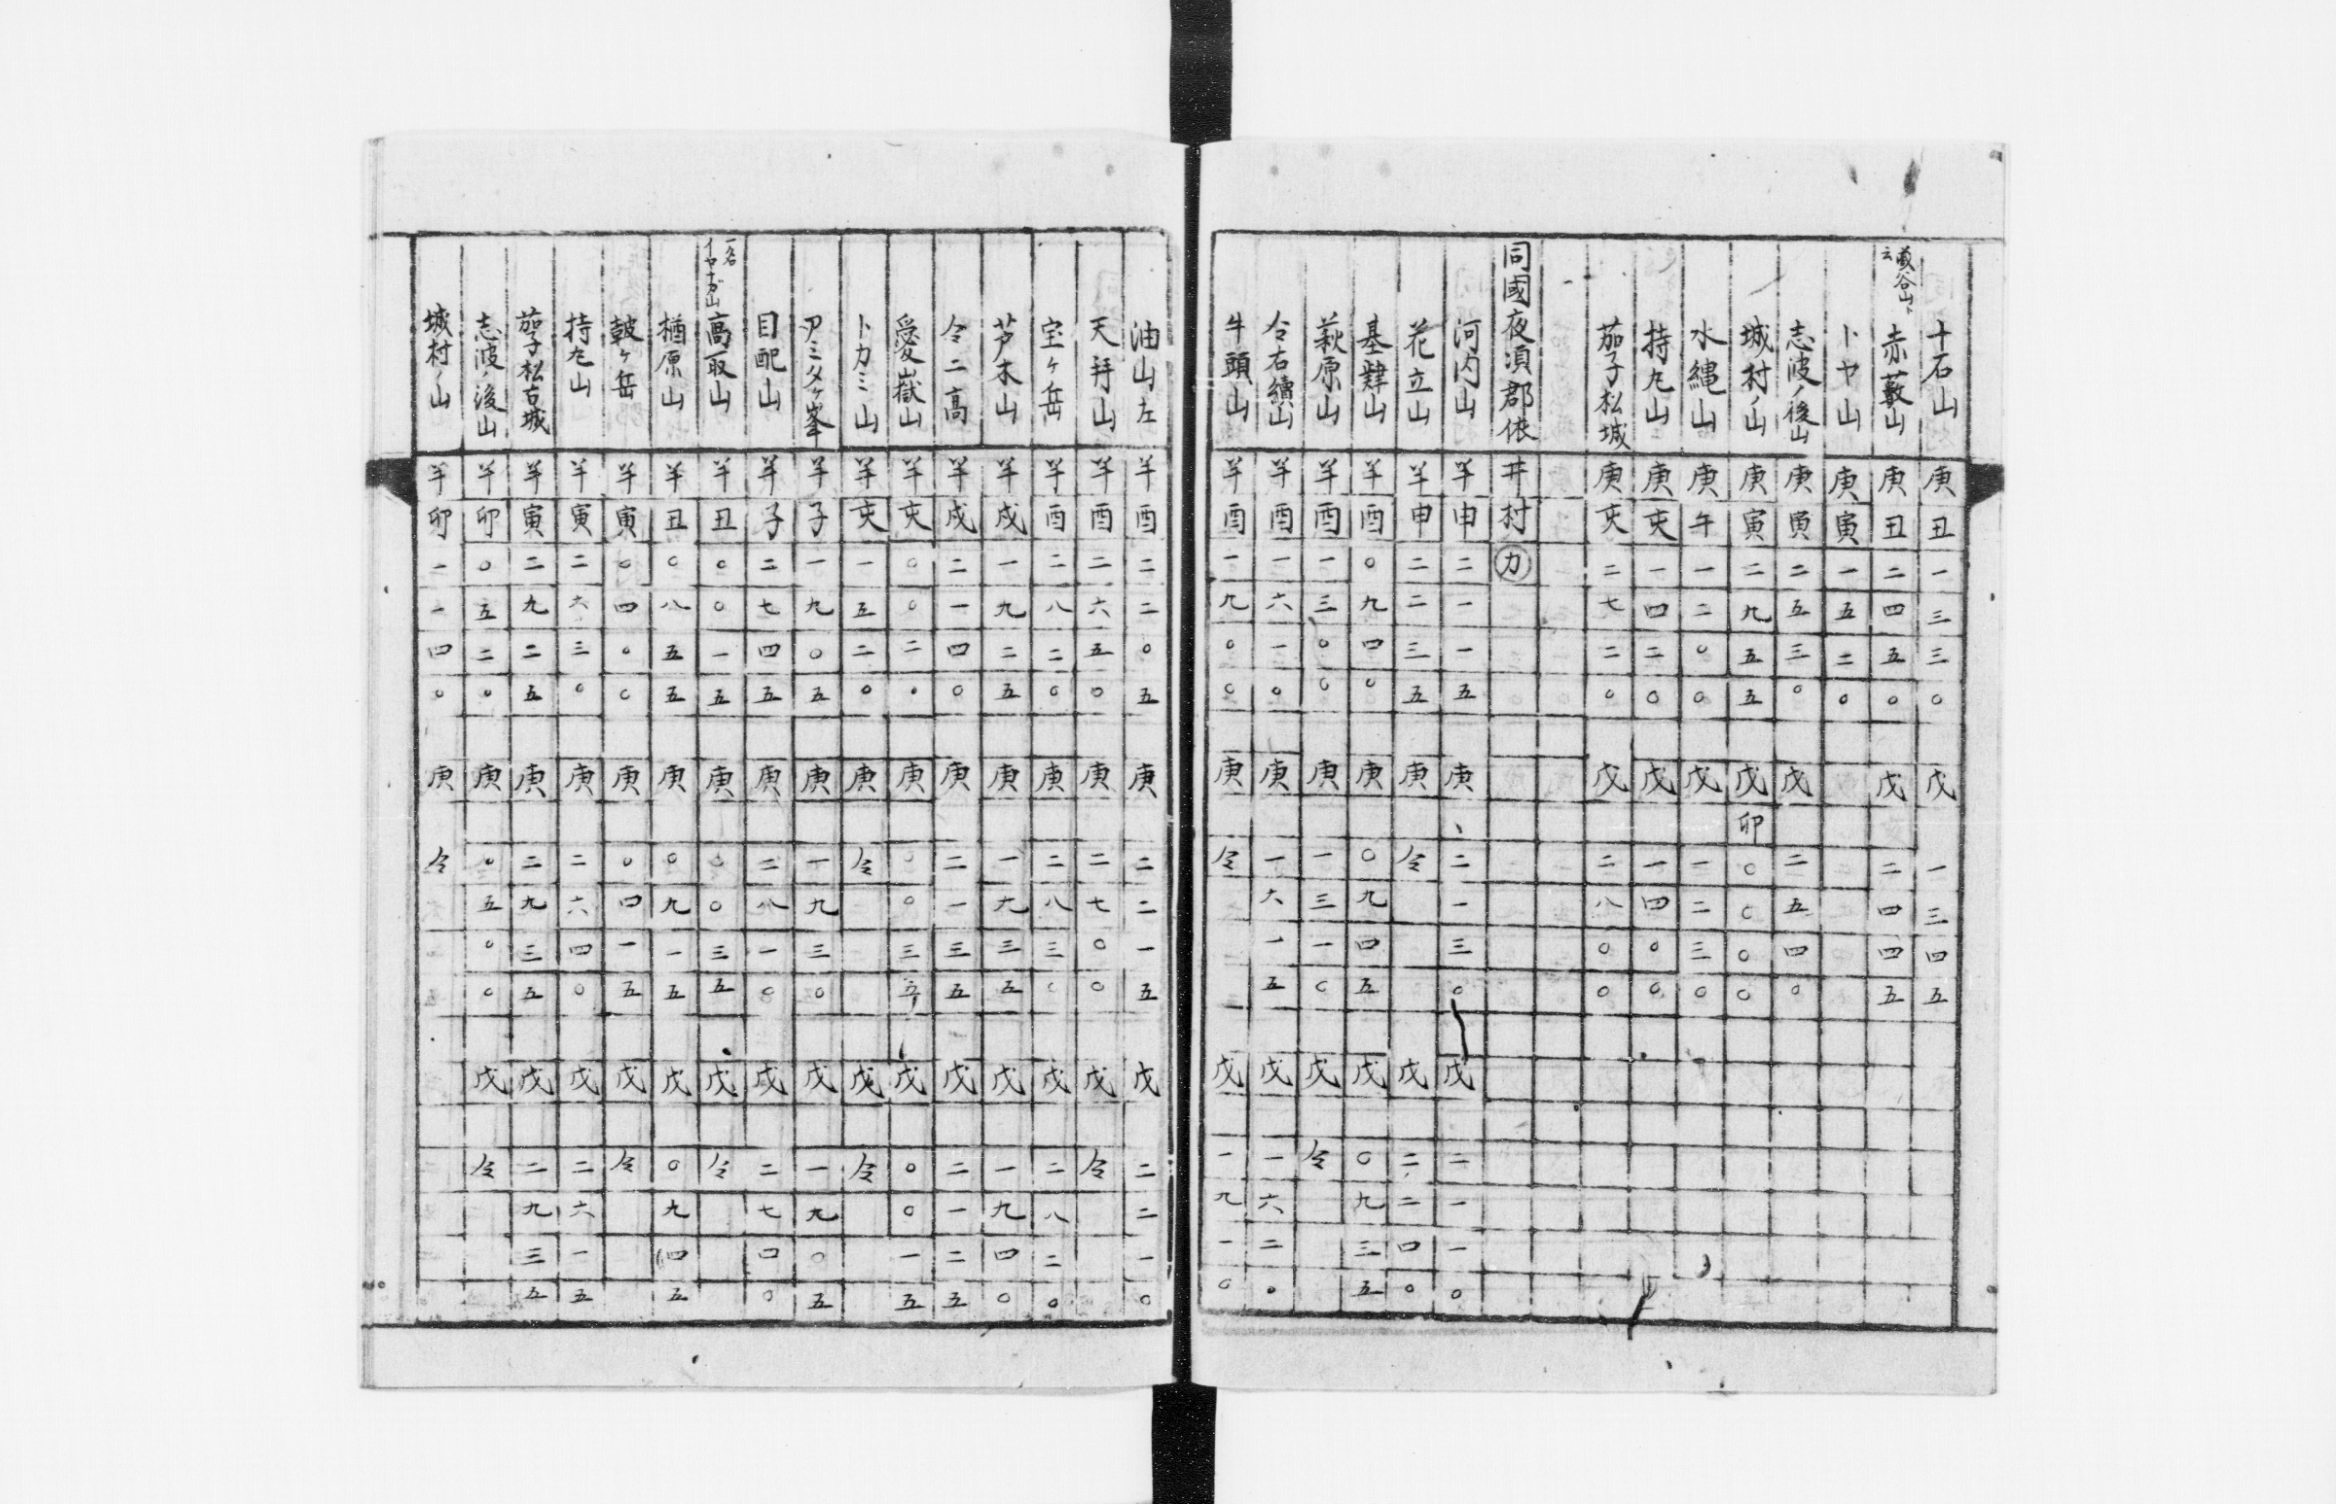 十石山 庚丑一三三〇 戊 一三四五
蔵谷山ト云 赤藪山 庚丑二四五〇 戊 二四四五
トヤ山 庚寅一五二〇
志波ノ後山 庚寅二五三〇 戊 二五四〇
城村ノ山 庚寅二九五五 戊卯〇〇〇〇
水縄山 庚午一二〇〇 戊 一二三〇
持丸山 庚亥一四二〇 戊 一四〇〇
茄子松城 庚亥二七二〇 戊 二八〇〇
同國夜須郡依井村 カ
河内山 羊申二一一五 庚 二一三〇 戊 二一一〇
花立山 羊申二二三五 庚 仝 戊 二二四〇
基肄山 羊酉〇九四〇 庚 〇九四五 戊 〇九三五
萩原山 羊酉一三〇〇 庚 一三一〇 戊 仝
仝右續山 羊酉一六一〇 庚 一六一五 戊 一六二〇
牛頭山 羊酉一九〇〇 庚 仝 戊 一九一〇
油山左 羊酉二二〇五 庚 二二一五 戊 二二一〇
天拜山 羊酉二六五〇 庚 二七〇〇 戊 仝
宝ヶ岳 羊酉二八二〇 庚 二八三〇 戊 二八二〇
芦木山 羊戌一九二五 庚 一九三五 戊 一九四〇
仝二高 羊戌二一四〇 庚 二一三五 戊 二一二五
愛嶽山 羊亥〇〇二〇 庚 〇〇三五 戊 〇〇一五
トカミ山 羊亥一五二〇 庚 仝 戊 仝
アミタヶ峯 羊子一九〇五 庚 一九三〇 戊 一九〇五
目配山 羊子二七四五 庚 二八一〇 戊 二七四〇
一名イヤナガ山 高取山 羊丑〇〇一五 庚 〇〇三五 戊 仝
楢原山 羊丑〇八五五 庚 〇九一五 戊 〇九四五
皷ヶ岳 羊寅〇四〇〇 庚 〇四一五 戊 仝
持丸山 羊寅二六三〇 庚 二六四〇 戊 二六一五
茄子松古城 羊寅二九二五 庚 二九三五 戊 二九三五
志波ノ後山 羊卯〇五二〇 庚 〇五〇〇 戊 仝
城村ノ山 羊卯一一四〇 庚 仝